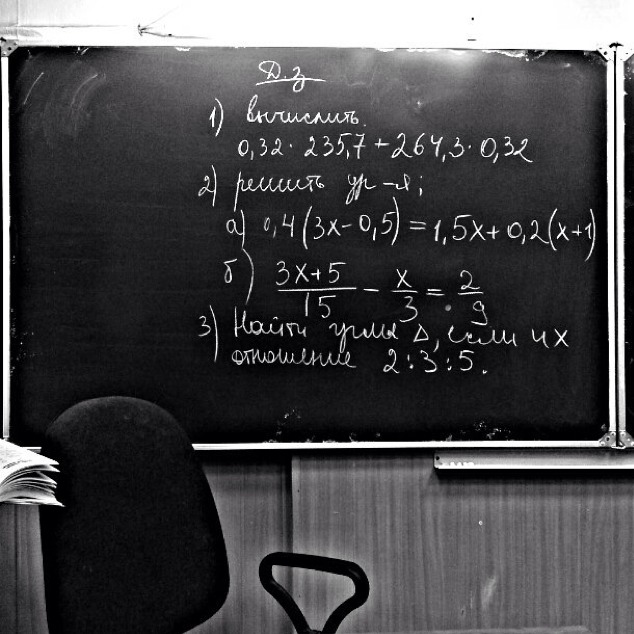 Д.з
1) вычислить.
0,32 · 235,7 + 264,3 · 0,32
2) решить ур-я;
а) 0,4(3x-0,5) = 1,5x+0,2(x+1)
б) (3x+5)/15 - x/3 = 2/9
3) Найти углы Δ, если их
отношение 2:3:5.